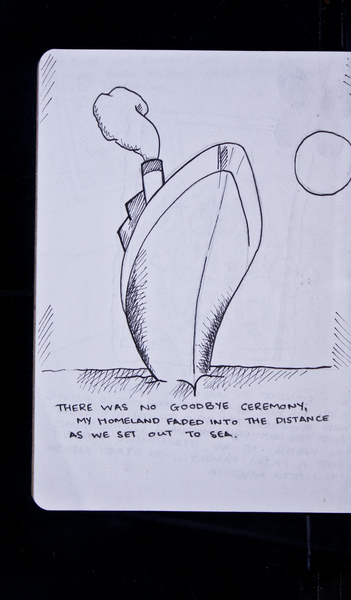 THERE WAS NO GOODBYE CEREMONY,
MY HOMELAND FADED INTO THE DISTANCE
AS WE SET OUT TO SEA.